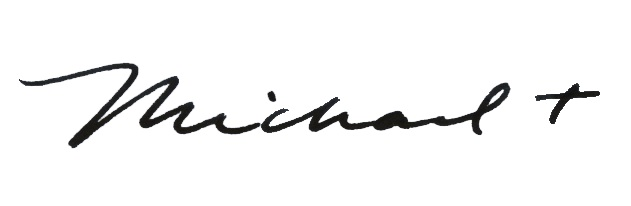 Michael +